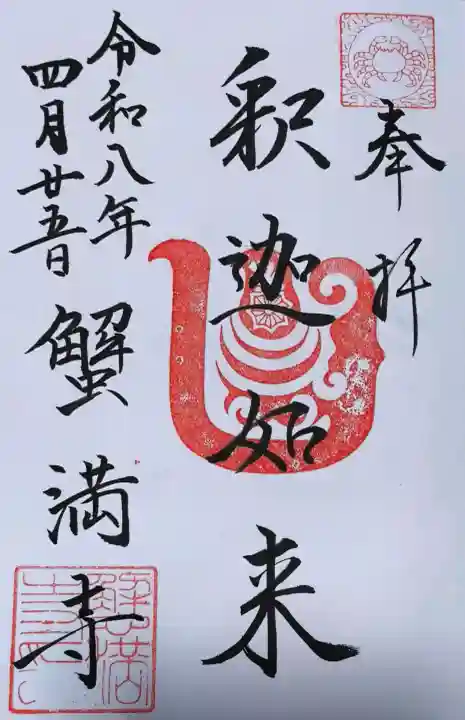 奉拝
釈迦如来
令和八年
四月廿五日
蟹満寺